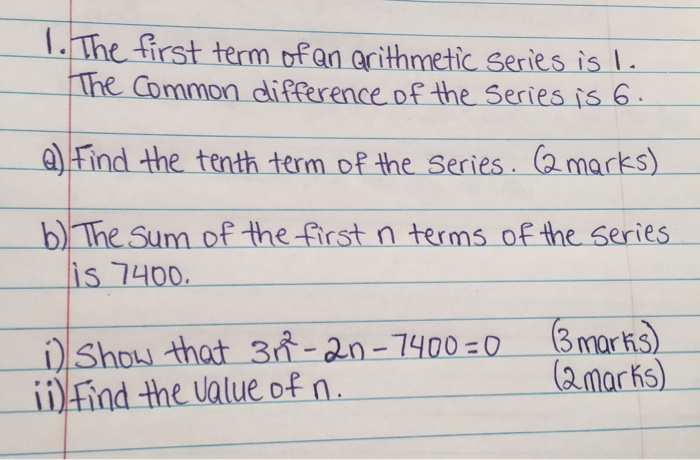 1. The first term of an arithmetic series is 1.
The Common difference of the series is 6.
a) Find the tenth term of the series. (2 marks)
b) The sum of the first n terms of the series
is 7400.
i) Show that 3n² - 2n - 7400 = 0 (3 marks)
ii) Find the value of n. (2 marks)